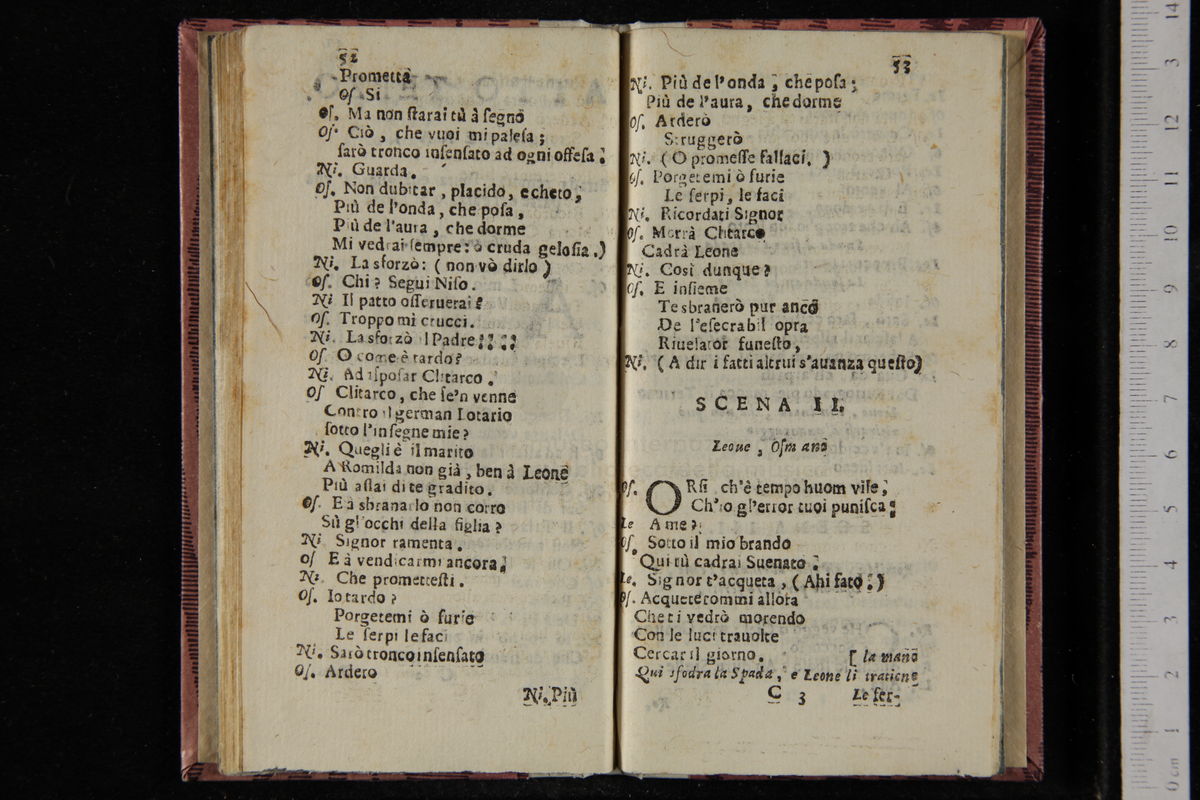 52
Promettà
Os. Si
Os. Ma non starai tù à segno
Os. Ciò, che vuoi mi palesa;
sarò tronco insensato ad ogni offesa.
Ni. Guarda.
Os. Non dubitar, placido, e cheto,
Più de l'onda, che posa,
Più de l'aura, che dorme
Mi vedrai sempre: ò cruda gelosia.)
Ni. La sforzò: (non vò dirlo)
Os. Chi? Segui Niso.
Ni Il patto osseruerai?
Os. Troppo mi crucci.
Ni. La sforzò il Padre
Os. O come è tardo?
Ni. Ad isposar Clitarco.
Os Clitarco, che se'n venne
Contro il german Lotario
sotto l'insegne mie?
Ni. Quegli è il marito
A Romilda non già, ben à Leone
Più assai di te gradito.
Os. E à sbranarlo non corro
Sù gl'occhi della figlia?
Ni Signor ramenta.
Os E à vendicarmi ancora,
Ni. Che promettesti.
Os. Io tardo?
Porgetemi ò furie
Le serpi le faci
Ni. Sarò tronco insensato
Os. Ardero
Ni. Più
53
Ni. Più de l'onda, che posa;
Più de l'aura, che dorme
Os. Arderò
Struggerò
Ni. (O promesse fallaci.)
Os. Porgetemi ò furie
Le serpi, le faci
Ni. Ricordati Signor
Os. Morrà Clitarco
Cadrà Leone
Ni. Così dunque?
Os. E insieme
Te sbranerò pur anco
De l'esecrabil opra
Riuelator funesto,
Ni. (A dir i fatti altrui s'auanza questo)
SCENA II.
Leone, Osmano
Os. ORsù ch'è tempo huom vile,
Ch'io gl'error tuoi punisca;
Le A me?
Os. Sotto il mio brando
Qui tù cadrai Suenato
Le. Signor t'acqueta, (Ahi fato!)
Os. Acqueterommi allora
Che ti vedrò morendo
Con le luci trauolte
Cercar il giorno. [la mano
Qui sfodra la Spada, e Leone li tratiene
C 3 Le fer-